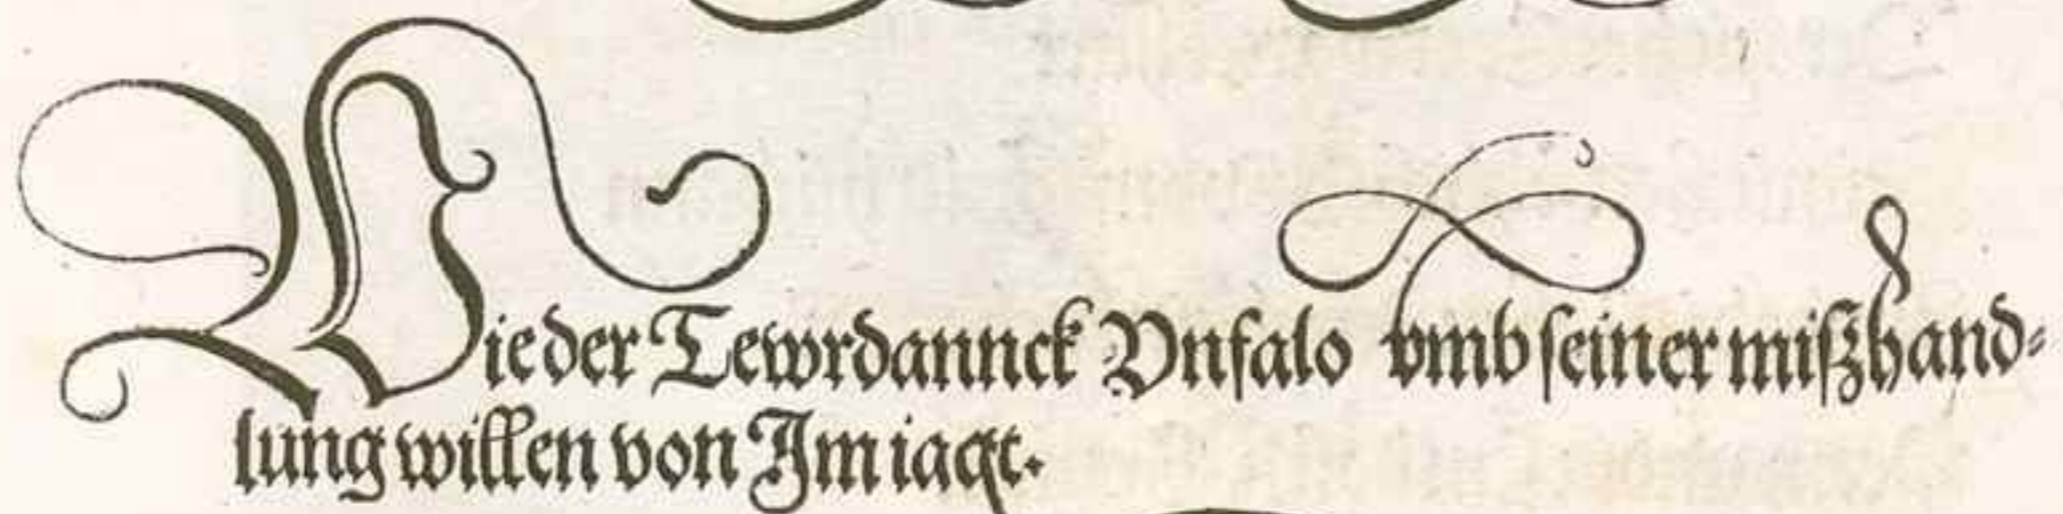 Wie der Tewrdannck Vnfalo vmb seiner mißhand⸗
lung willen von Im iagt.